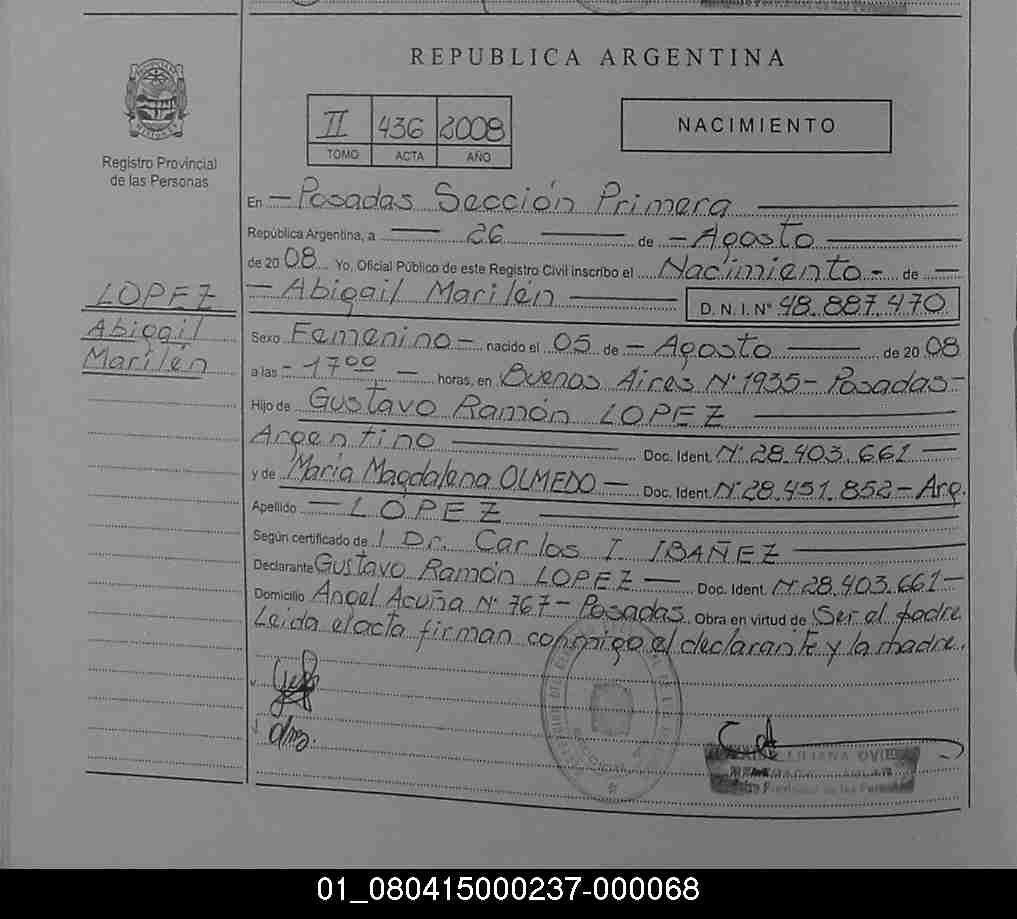 REPUBLICA ARGENTINA
II 436 2008
TOMO ACTA AÑO
NACIMIENTO
Registro Provincial
de las Personas
En — Posadas Sección Primera
República Argentina, a — 26 — de — Agosto —
de 2008 Yo, Oficial Público de este Registro Civil inscribo el Nacimiento - de —
LOPEZ
Abigail
Marilén
— Abigail Marilén — D. N. I. Nº 48.887.470
Sexo Femenino — nacido el 05 de — Agosto — de 2008
a las - 17⁰⁰ — horas, en Buenos Aires Nº 1935 - Posadas -
Hijo de Gustavo Ramón LOPEZ —
Argentino — Doc. Ident. Nº 28.403.661 —
y de María Magdalena OLMEDO — Doc. Ident. Nº 28.451.852 - Arg.
Apellido — LÓPEZ —
Según certificado de l Dr. Carlos I IBAÑEZ —
Declarante Gustavo Ramón LOPEZ — Doc. Ident. Nº 28.403.661 —
Domicilio Angel Acuña Nº 767 - Posadas. Obra en virtud de Ser el padre
Leida el acta firman conmigo el declarante y la madre.
LILIANA
Registro Provincial de las Personas
01_080415000237-000068